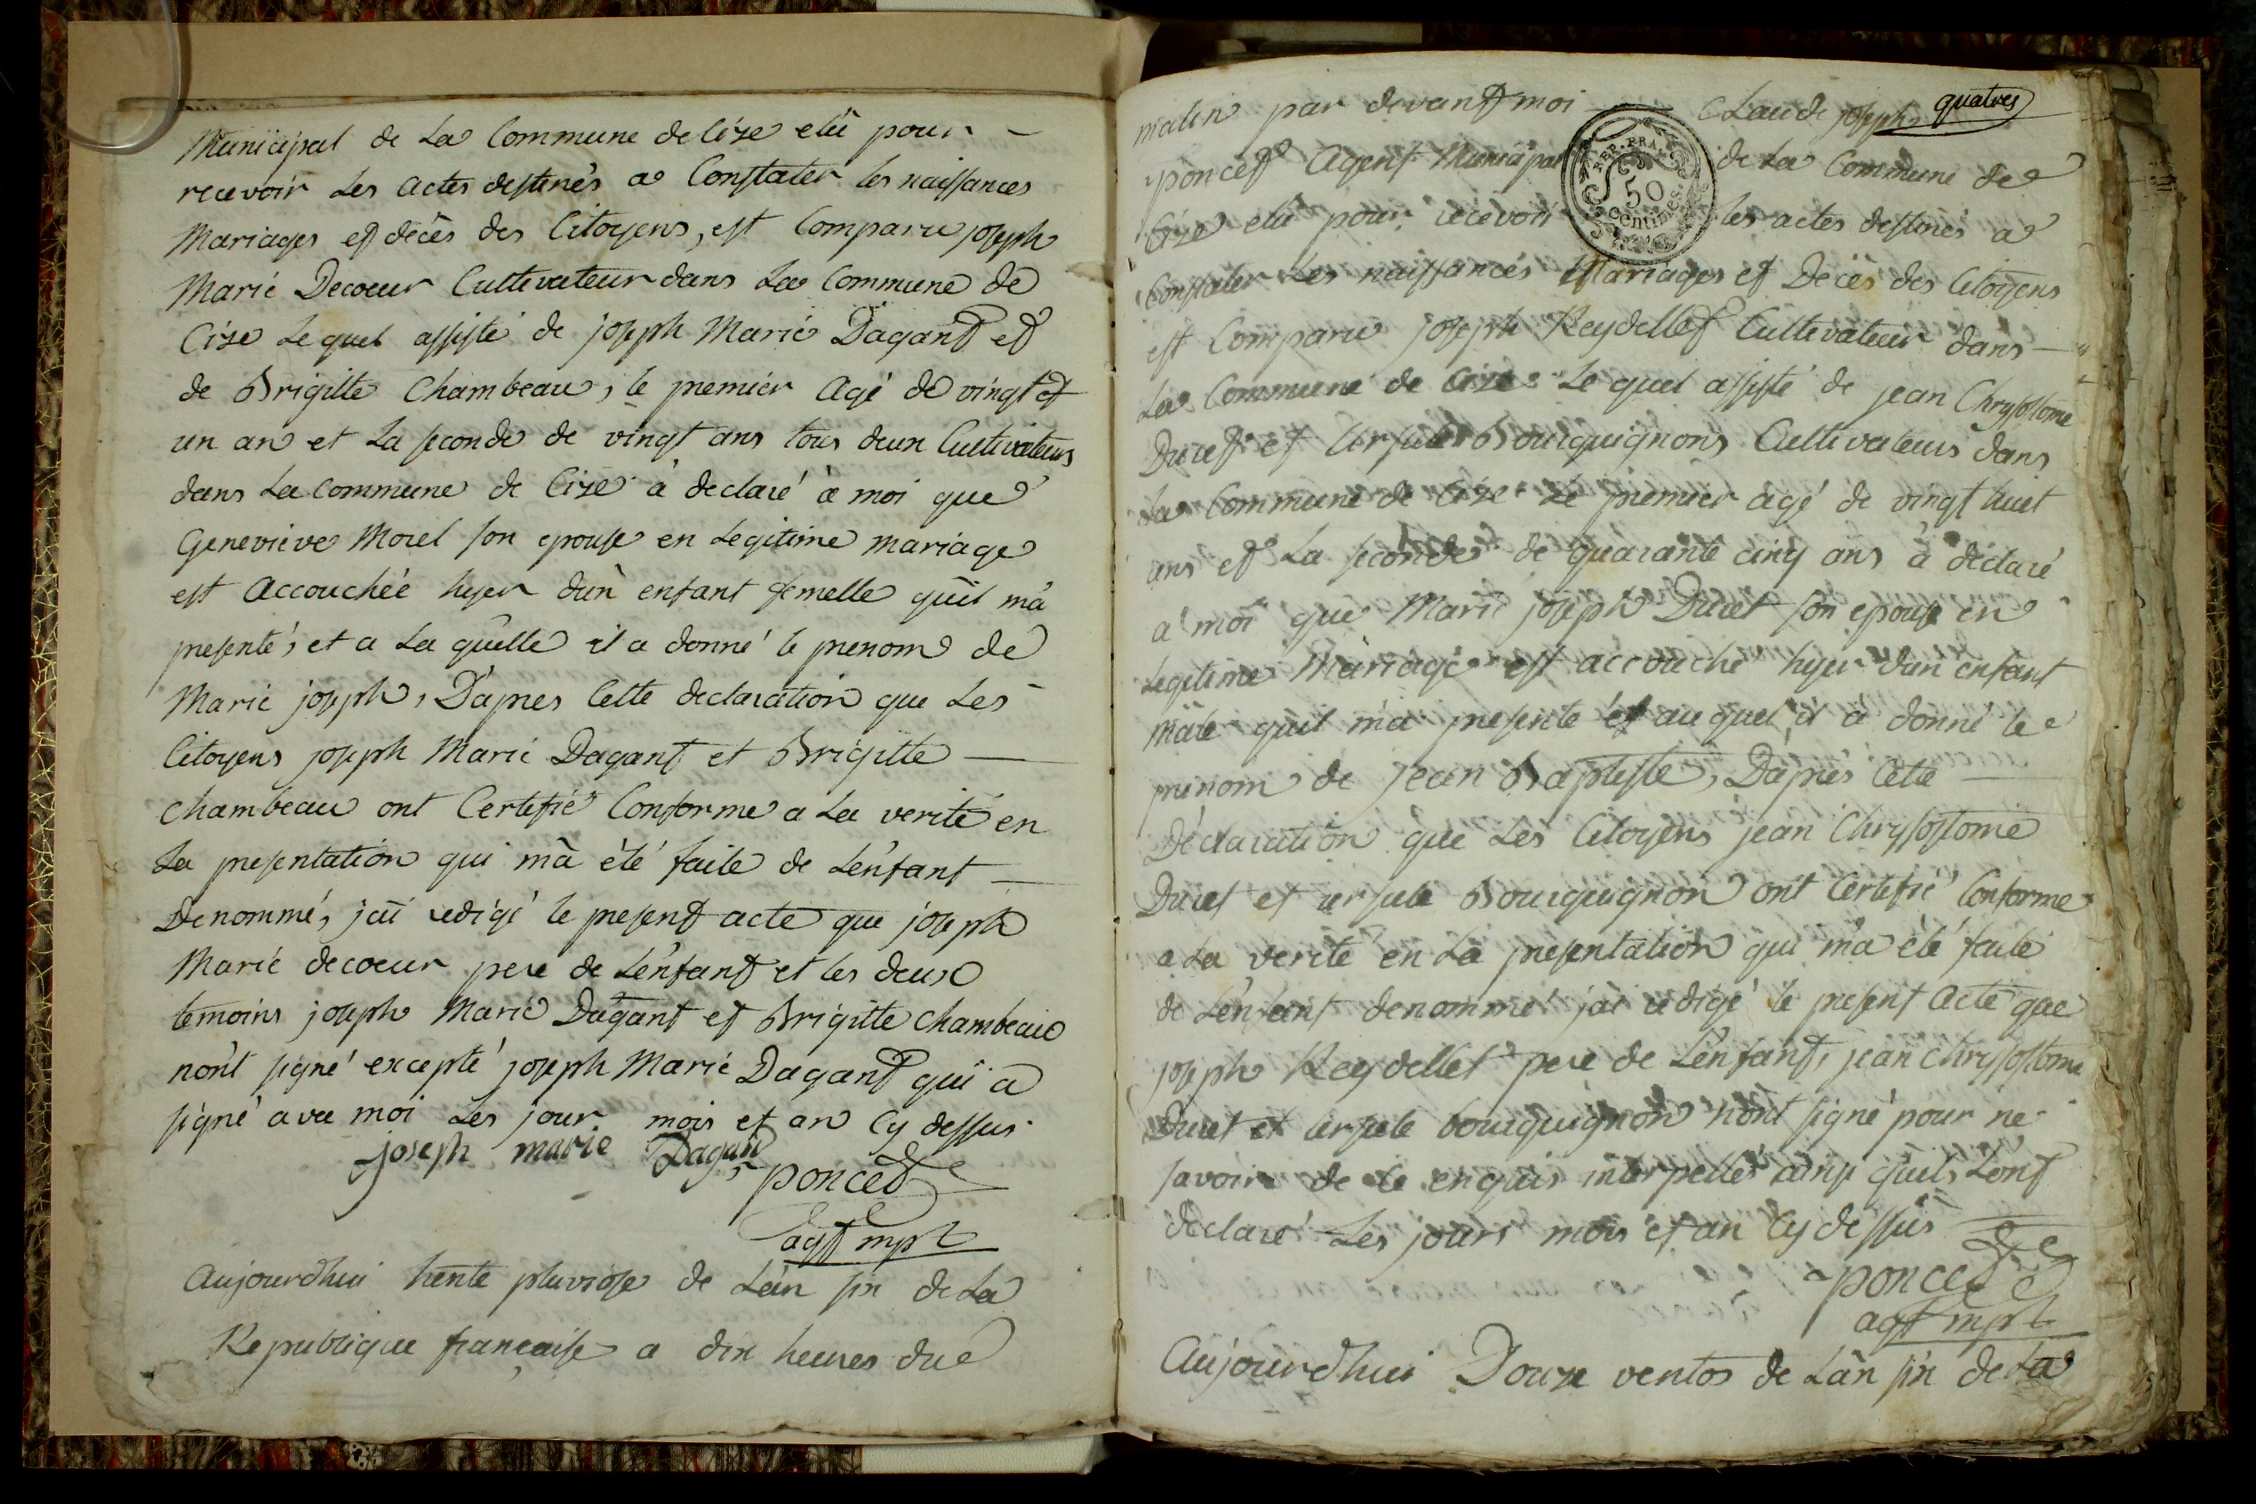 Municipal de La Commune de Cize elû pour
recevoir Les actes destinés a Constater les naissances
Mariages et décès des Citoyens, est Comparu joseph
Marie Decoeur Cultivateur dans La Commune de
Cize Le quel assisté de joseph Marie Dagant et
de Brigitte Chambeau, le premier Agé de vingt et
un an et La seconde de vingt ans tous deux Cultivateurs
dans La commune de Cize à declaré à moi que
Genevieve Morel son epouse en Legitime mariage
est Accouchée hyer dùn enfant femelle qùil mà
presenté, et a La qùelle il a donné le prenom de
Marie joseph, Dàpres Cette declaration que Les
Citoyens joseph Marie Dagant et Brigitte
Chambeau ont Certifié Conforme a La verité en
La presentation qui mà été faite de Lénfant
Denommé, jài redigé le present acte que joseph
Marie decoeur pere de Lénfant et les deux
temoins joseph Marie Dagant et Brigitte Chambeau
nònt signé excepté joseph Marie Dagant qui a
signé avec moi Les jour mois et an Cy dessus
joseph marie Dagan
poncet
agt mpl
Aujourdhui trente pluviose de Làn six de La
Republique française a dix heures du
quatres
matin par devant moi Claude joseph
poncet Agent Municipal de La Commune de
Cize elû pour recevoir les actes destinés a
Constater Les naissances Mariages et Décès des Citoyens
est Comparu joseph Reydellet Cultivateur dans
La Commune de Cize Le quel assisté de jean Chrysostome
Ducret et Ursule Bourguignon Cultivateurs dans
La Commune de Cize Le premier agé de vingt huit
ans et La seconde de quarante cinq ans à déclaré
a moi que Marie joseph Ducret son epouse en
Legitime Mariage est accouché hyer dun enfant
mâle quil mà presenté et au quel il à donné le
prenom de jean Baptiste, Dàpres Cette
Déclaration que Les Citoyens jean Chrysostome
Ducret et ursule Bourguignon ont Certifié Conforme
a La verité en La presentation qui mà été faite
de Lénfant denommé jai redigé le present Acte que
joseph Reydellet pere de Lénfant, jean chrysostome
Ducret et Ursule bourguignon nont signé pour ne
savoir de ce enquis interpellés ainsi quils Lont
déclaré Les jours mois et an Cy dessus
poncet
agt mpl
Aujourdhui Douze ventos de Làn six de La
REP. FRA.
50
Centimes